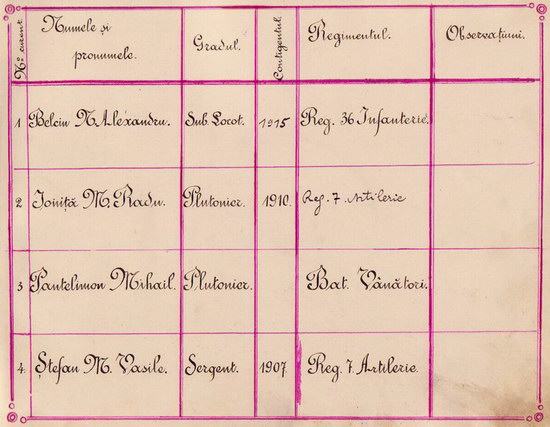 No curent.
Numele și
pronumele.
Gradul.
Contigentul
Regimentul.
Observațiuni.
1 Belciu N. Alexandru. Sub. Locot. 1915 Reg. 36 Infanterie.
2 Ioniță M. Radu. Plutonier. 1910. Reg. 7 Artilerie
3 Pantelimon Mihail. Plutonier. Bat. Vânători.
4. Ștefan M. Vasile. Sergent. 1907 Reg. 7. Artilerie